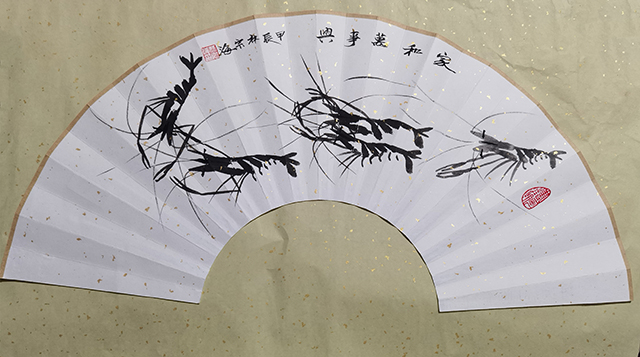 家和萬事興
甲辰林宗海